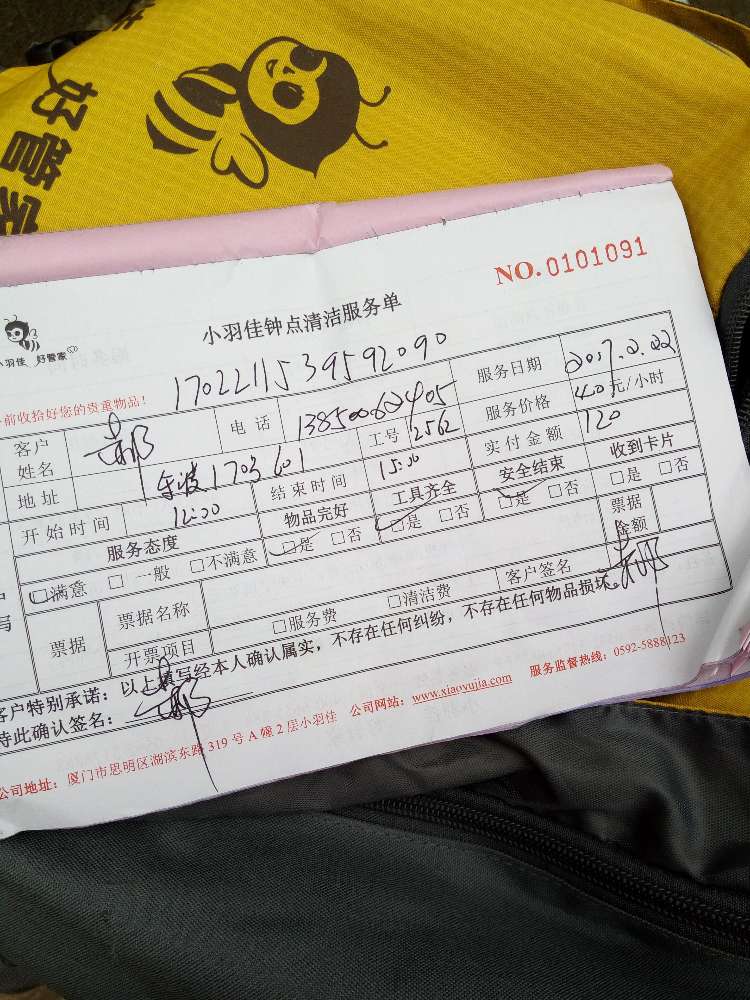 好管家
NO.0101091
小羽佳 好管家
小羽佳钟点清洁服务单
1702211539592090
前收拾好您的贵重物品!
客户姓名 电话 服务日期 2017.2.22
地址 1703601 工号 2562 服务价格 40元/小时
开始时间 12:00 结束时间 15:00 实付金额 120
服务态度 物品完好 工具齐全 安全结束 收到卡片
□满意 □一般 □不满意 □是 □否 □是 □否 □是 □否 □是 □否
票据 票据名称 票据金额
开票项目 □服务费 □清洁费 客户签名
客户特别承诺:以上填写经本人确认属实,不存在任何纠纷,不存在任何物品损坏。
特此确认签名:
公司地址:厦门市思明区湖滨东路319号A幢2层小羽佳 公司网站:www.xiaoyujia.com 服务监督热线:0592-5888123